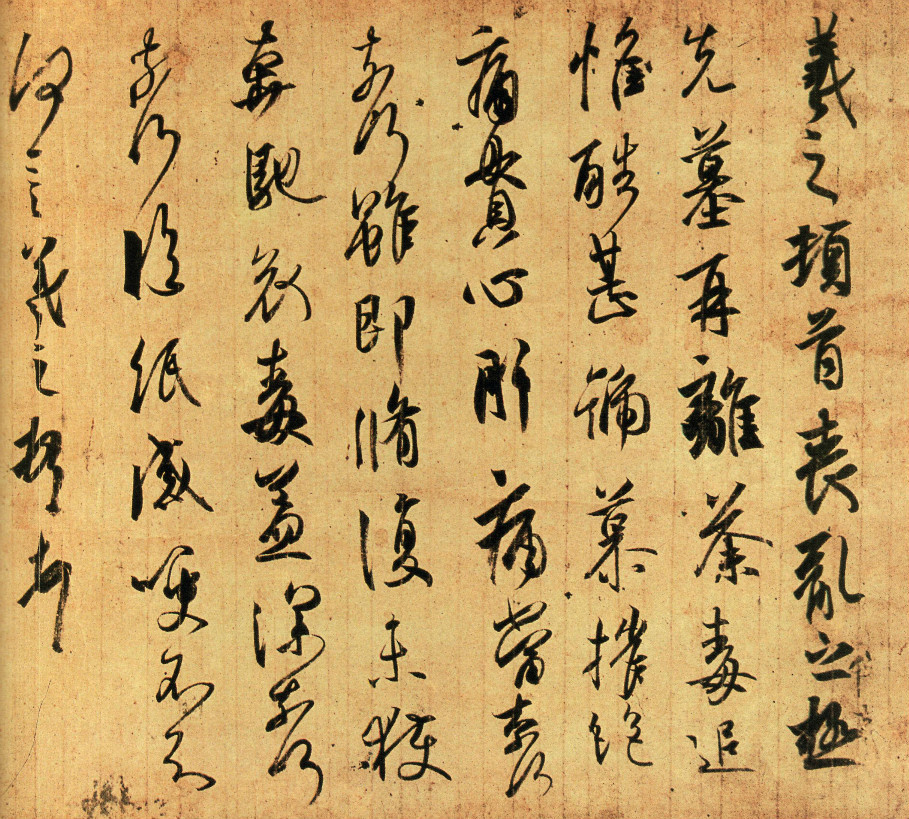 羲之頓首喪亂之極
先墓再離荼毒追
惟酷甚號慕摧絕
痛貫心肝痛當柰何
柰何雖即脩復未獲
奔馳哀毒益深柰何
柰何臨紙感哽不知
何言羲之頓首頓首